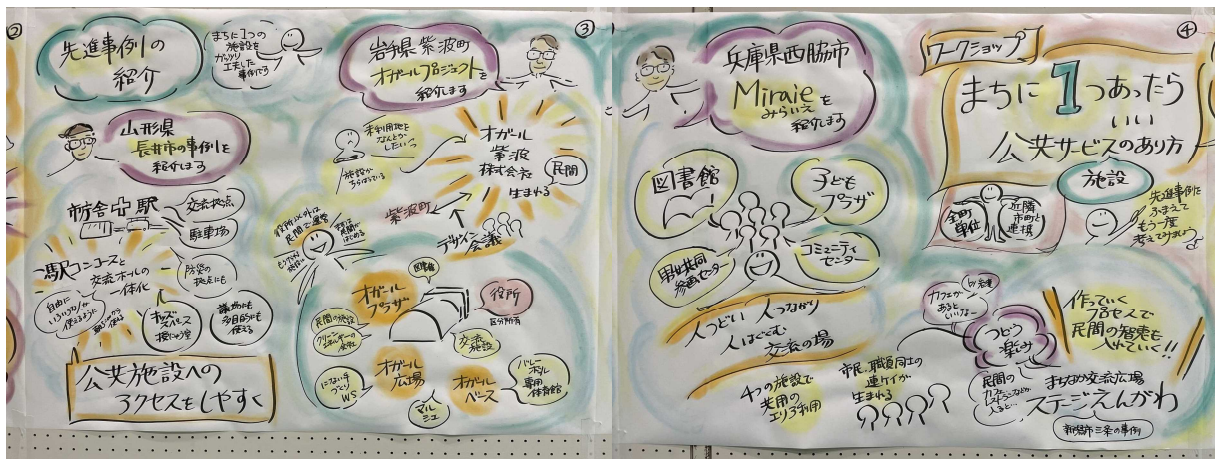 ②
先進事例の
紹介
まちに1つの
施設を
ガッツリ
工夫した
事例です
山形県
長井市の事例を
紹介します
市庁舎 駅
交流拠点
駐車場
駅コンコースと
交流ホールの
一体化
防災の
拠点にも
自由に
使えるように
キッズ
スペース
議場にも
多目的にも
使える
公共施設への
アクセスをしやすく
③
岩手県紫波町
オガールプロジェクトを
紹介します
未利用地を
なんとか
したいっ
施設が
ちらばっている
オガール
紫波
株式会社
生まれる
民間
紫波町
デザイン
会議
役所以外は
民間で運営
オガール
プラザ
図書館
役所
区分所有
民間の施設
交流
施設
オガール
広場
にない手
づくり
WS
マル
シェ
オガール
ベース
バレー
ボール
専用
体育館
兵庫県西脇市
Miraieを
みらいえ
紹介します
図書館
子ども
プラザ
男女共同
参画センター
コミュニティ
センター
人つどい 人つながり
人はぐくむ
交流の場
4つの施設で
共用の
エリア利用
市民、職員同士の
連ケイが
生まれる
④
ワークショップ
まちに1つあったら
いい
公共サービスのあり方
施設
全町
単位
近隣
市町と
連携
先進事例を
ふまえて
もう一度
考えてみましょう
カフェが
あると
いいな〜
つどう
楽しみ
民間の
カフェ
レストランなどが
入ると…
作っていく
プロセスで
民間の智恵も
入れていく!!
まちなか交流広場
ステージえんがわ
新潟市三条の事例